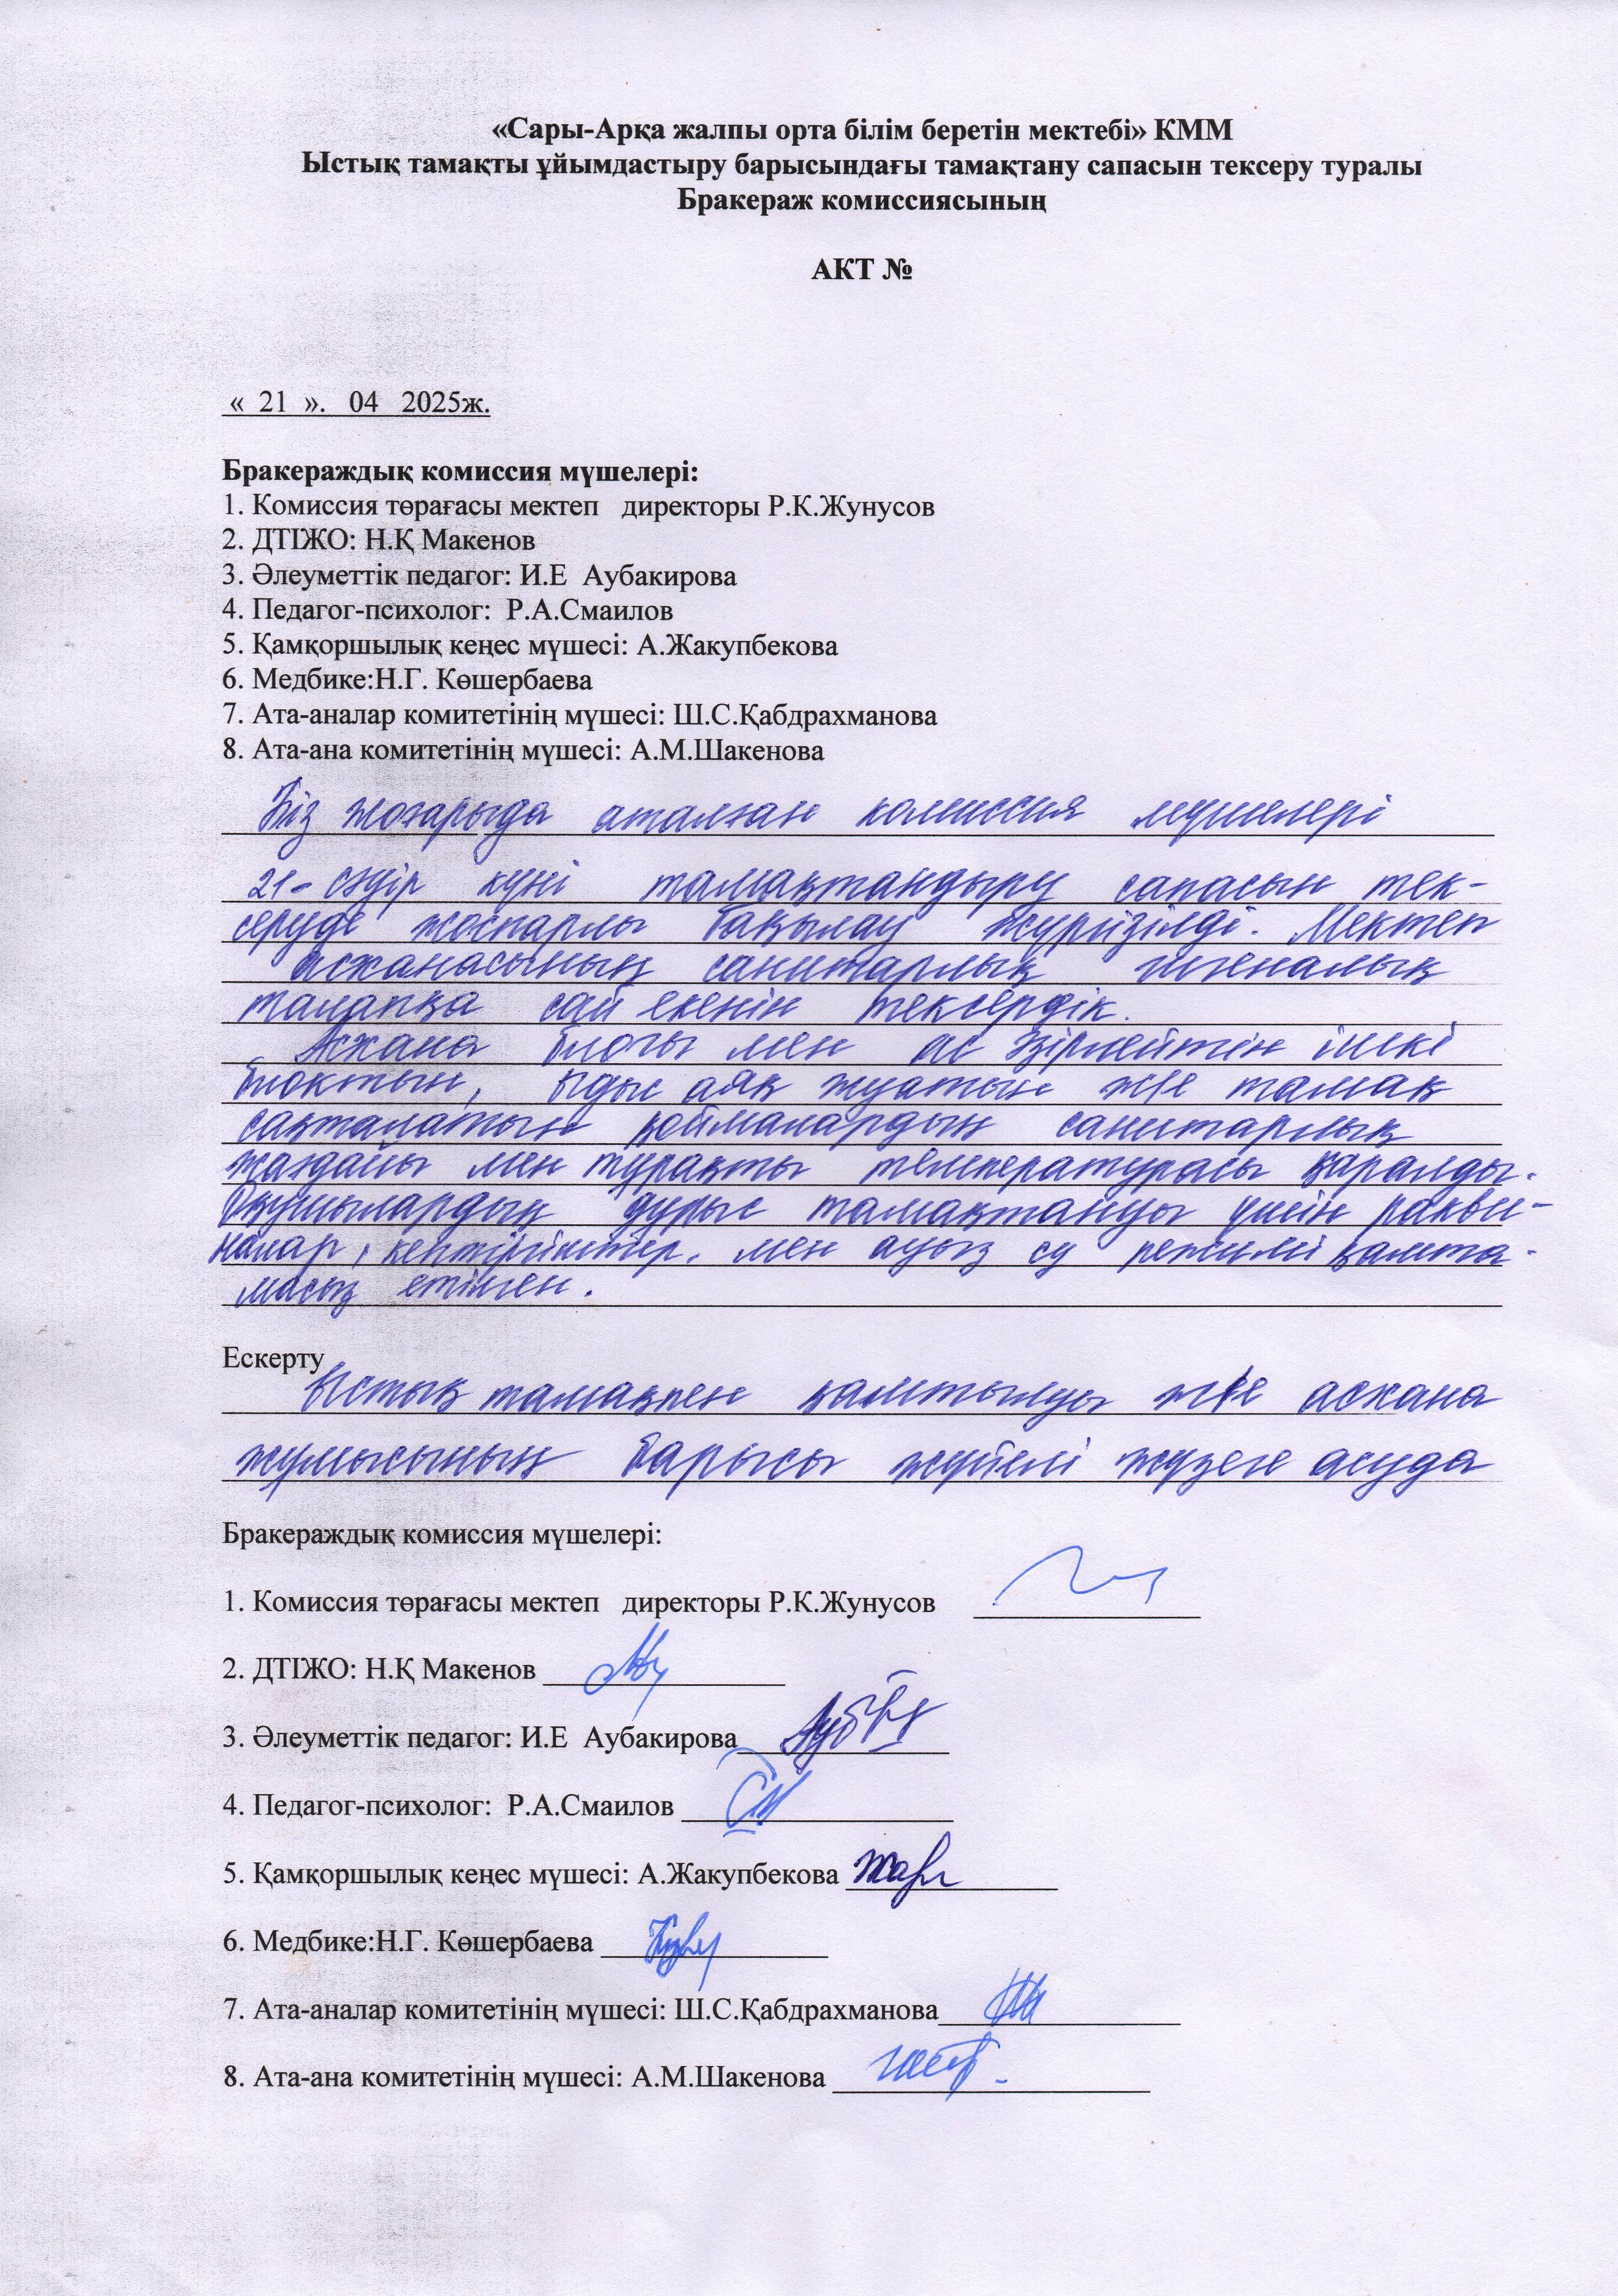 «Сары-Арқа жалпы орта білім беретін мектебі» КММ
Ыстық тамақты ұйымдастыру барысындағы тамақтану сапасын тексеру туралы
Бракераж комиссиясының
АКТ №
« 21 ». 04 2025ж.
Бракераждық комиссия мүшелері:
1. Комиссия төрағасы мектеп директоры Р.К.Жунусов
2. ДТІЖО: Н.Қ Макенов
3. Әлеуметтік педагог: И.Е Аубакирова
4. Педагог-психолог: Р.А.Смаилов
5. Қамқоршылық кеңес мүшесі: А.Жакупбекова
6. Медбике:Н.Г. Көшербаева
7. Ата-аналар комитетінің мүшесі: Ш.С.Қабдрахманова
8. Ата-ана комитетінің мүшесі: А.М.Шакенова
Біз жоғарыда аталған комиссия мүшелері
21-сәуір күні тамақтандыру сапасын тек-
серуде жоспарлы бақылау жүргізілді. Мектеп
асханасының санитарлық гигеналық
талапқа сай екенін тексердік.
Асхана блогы мен ас әзірлейтін ішкі
блоктың, ыдыс аяқ жуатын және тамақ
сақталатын қоймалардың санитарлық
жағдайы мен тұрақты температурасы қаралды.
Оқушылардың дұрыс тамақтануы үшін ракви-
налар, кептіргіштер, мен ауыз су режимі қамта-
масыз етілген.
Ескерту
Ыстық тамақпен қамтылуы және асхана
жұмысының барысы жүйелі жүзеге асуда
Бракераждық комиссия мүшелері:
1. Комиссия төрағасы мектеп директоры Р.К.Жунусов
2. ДТІЖО: Н.Қ Макенов
3. Әлеуметтік педагог: И.Е Аубакирова
4. Педагог-психолог: Р.А.Смаилов
5. Қамқоршылық кеңес мүшесі: А.Жакупбекова
6. Медбике:Н.Г. Көшербаева
7. Ата-аналар комитетінің мүшесі: Ш.С.Қабдрахманова
8. Ата-ана комитетінің мүшесі: А.М.Шакенова